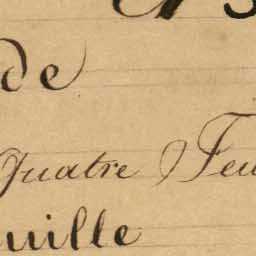 de
Quatre Feu
uille